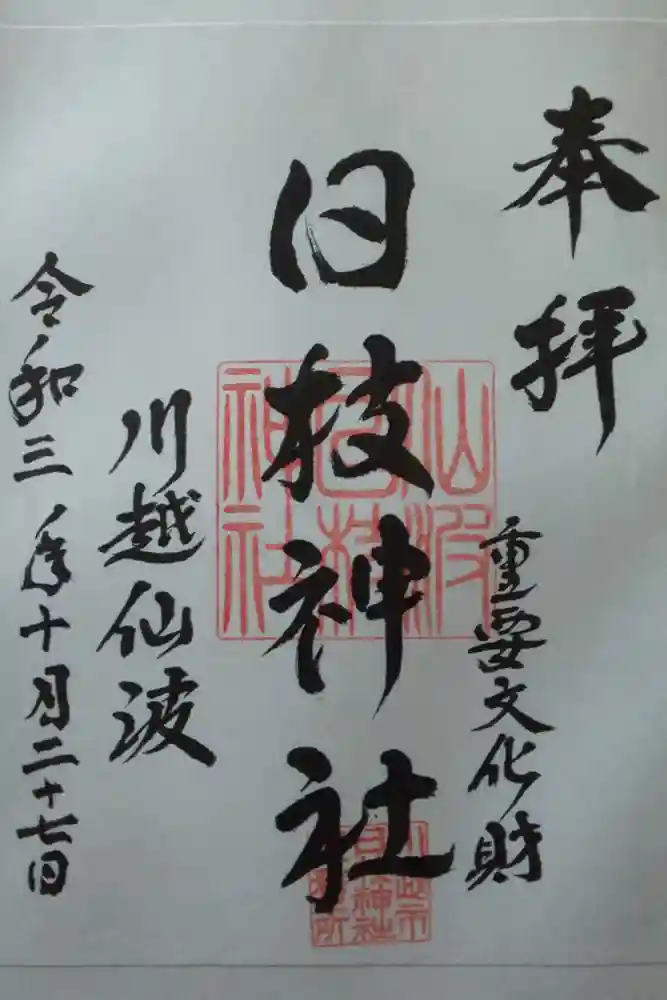 奉拝
重要文化財
日枝神社
仙波
日枝
神社
川越仙波
令和三年十月二十七日